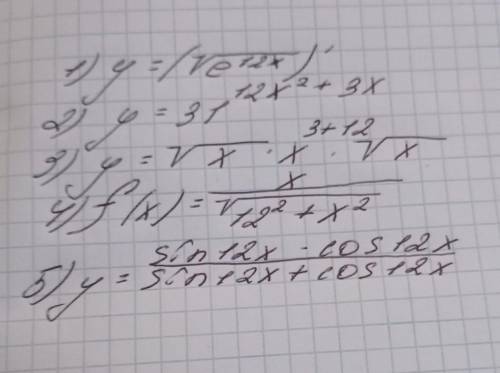 1) y = (√e^{12x})'
2) y = 31^{12x² + 3x}
3) y = √x · x^{3+12} · √x
4) f(x) = x / √(12² + x²)
5) y = (sin 12x - cos 12x) / (sin 12x + cos 12x)